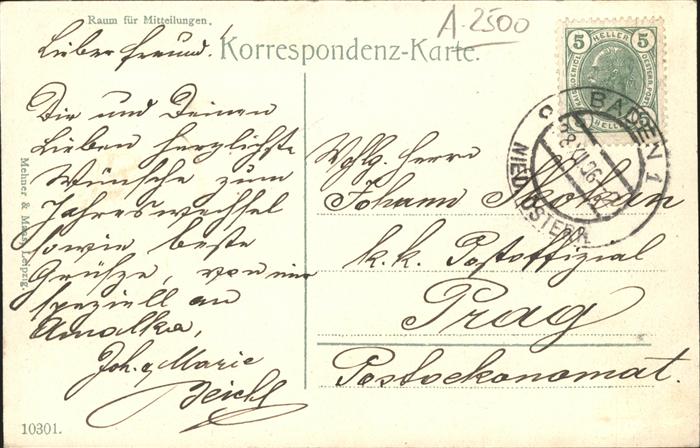 Raum für Mitteilungen.
A-2500
Korrespondenz-Karte.
Lieber Freund!
Dir und Deinen
Lieben herzlichste
Wünsche zum
Jahreswechsel
sowie beste
Grüße, von mir
speziell an
Amalka,
Joh. & Marie
Wohlg. Herrn
Johann
k.k. Postoffizial
Prag
Postoekonomat.
5 HELLER 5
BADEN 1
NIED. ÖSTERR.
Mehner & Maas, Leipzig.
10301.